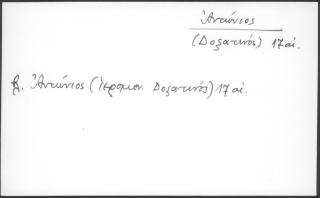 Ἀντώνιος
(Δοξατινός) 17 αἰ.
β. Ἀντώνιος (ἱερομον. Δοξατινός) 17 αἰ.